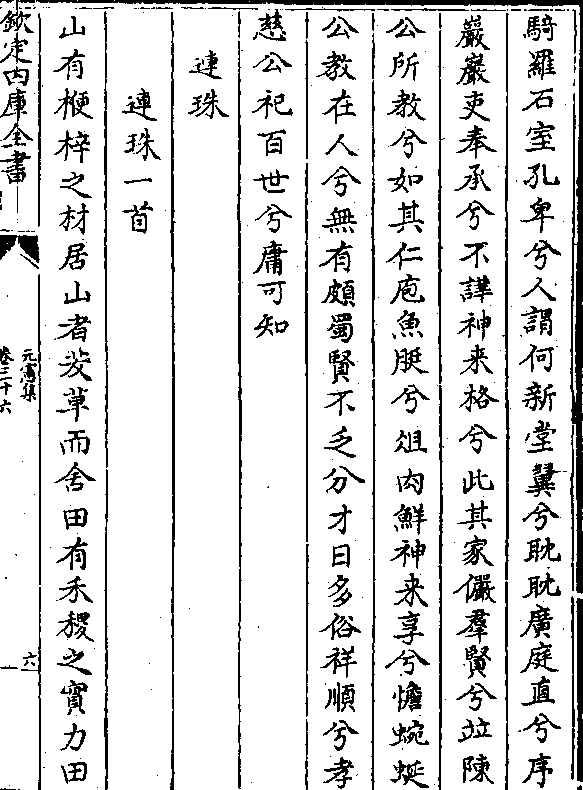 騎羅石室孔卑兮人謂何新堂翼兮耽耽廣庭直兮序
嚴巖吏奉承兮不譁神来格兮此其家儼羣賢兮竝陳
公所教兮如其仁庖魚脡兮俎肉鮮神来享兮憺蜿蜒
公教在人兮無有頗蜀賢不乏兮才日多俗祥順兮孝
慈公祀百世兮庸可知
連珠
連珠一首
山有楩梓之材居山者茇草而舍田有禾稷之實力田
欽定四庫全書
元憲集
卷三十六
六